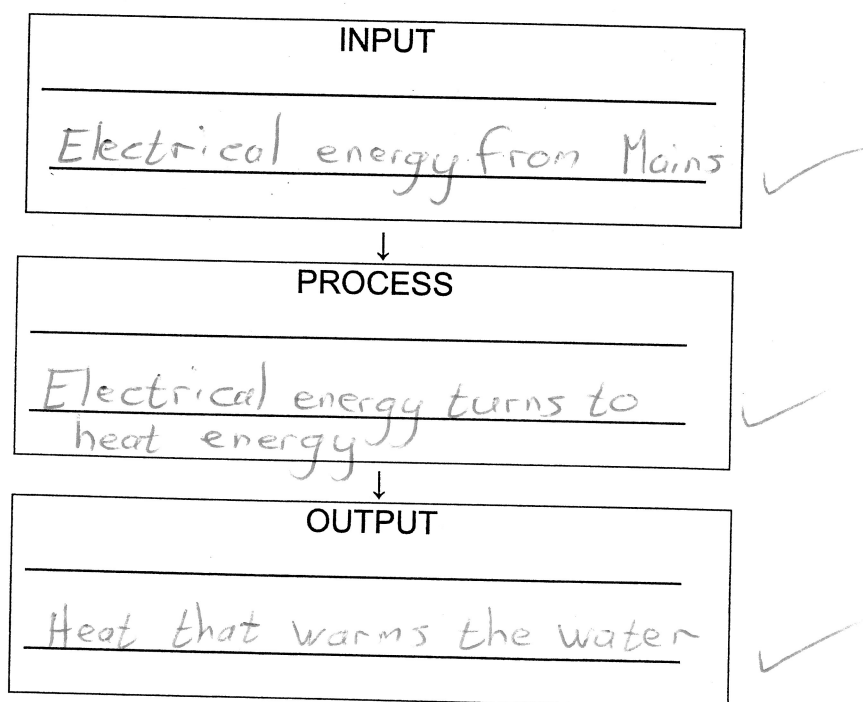 INPUT
Electrical energy from Mains
↓
PROCESS
Electrical energy turns to
heat energy
↓
OUTPUT
Heat that warms the water